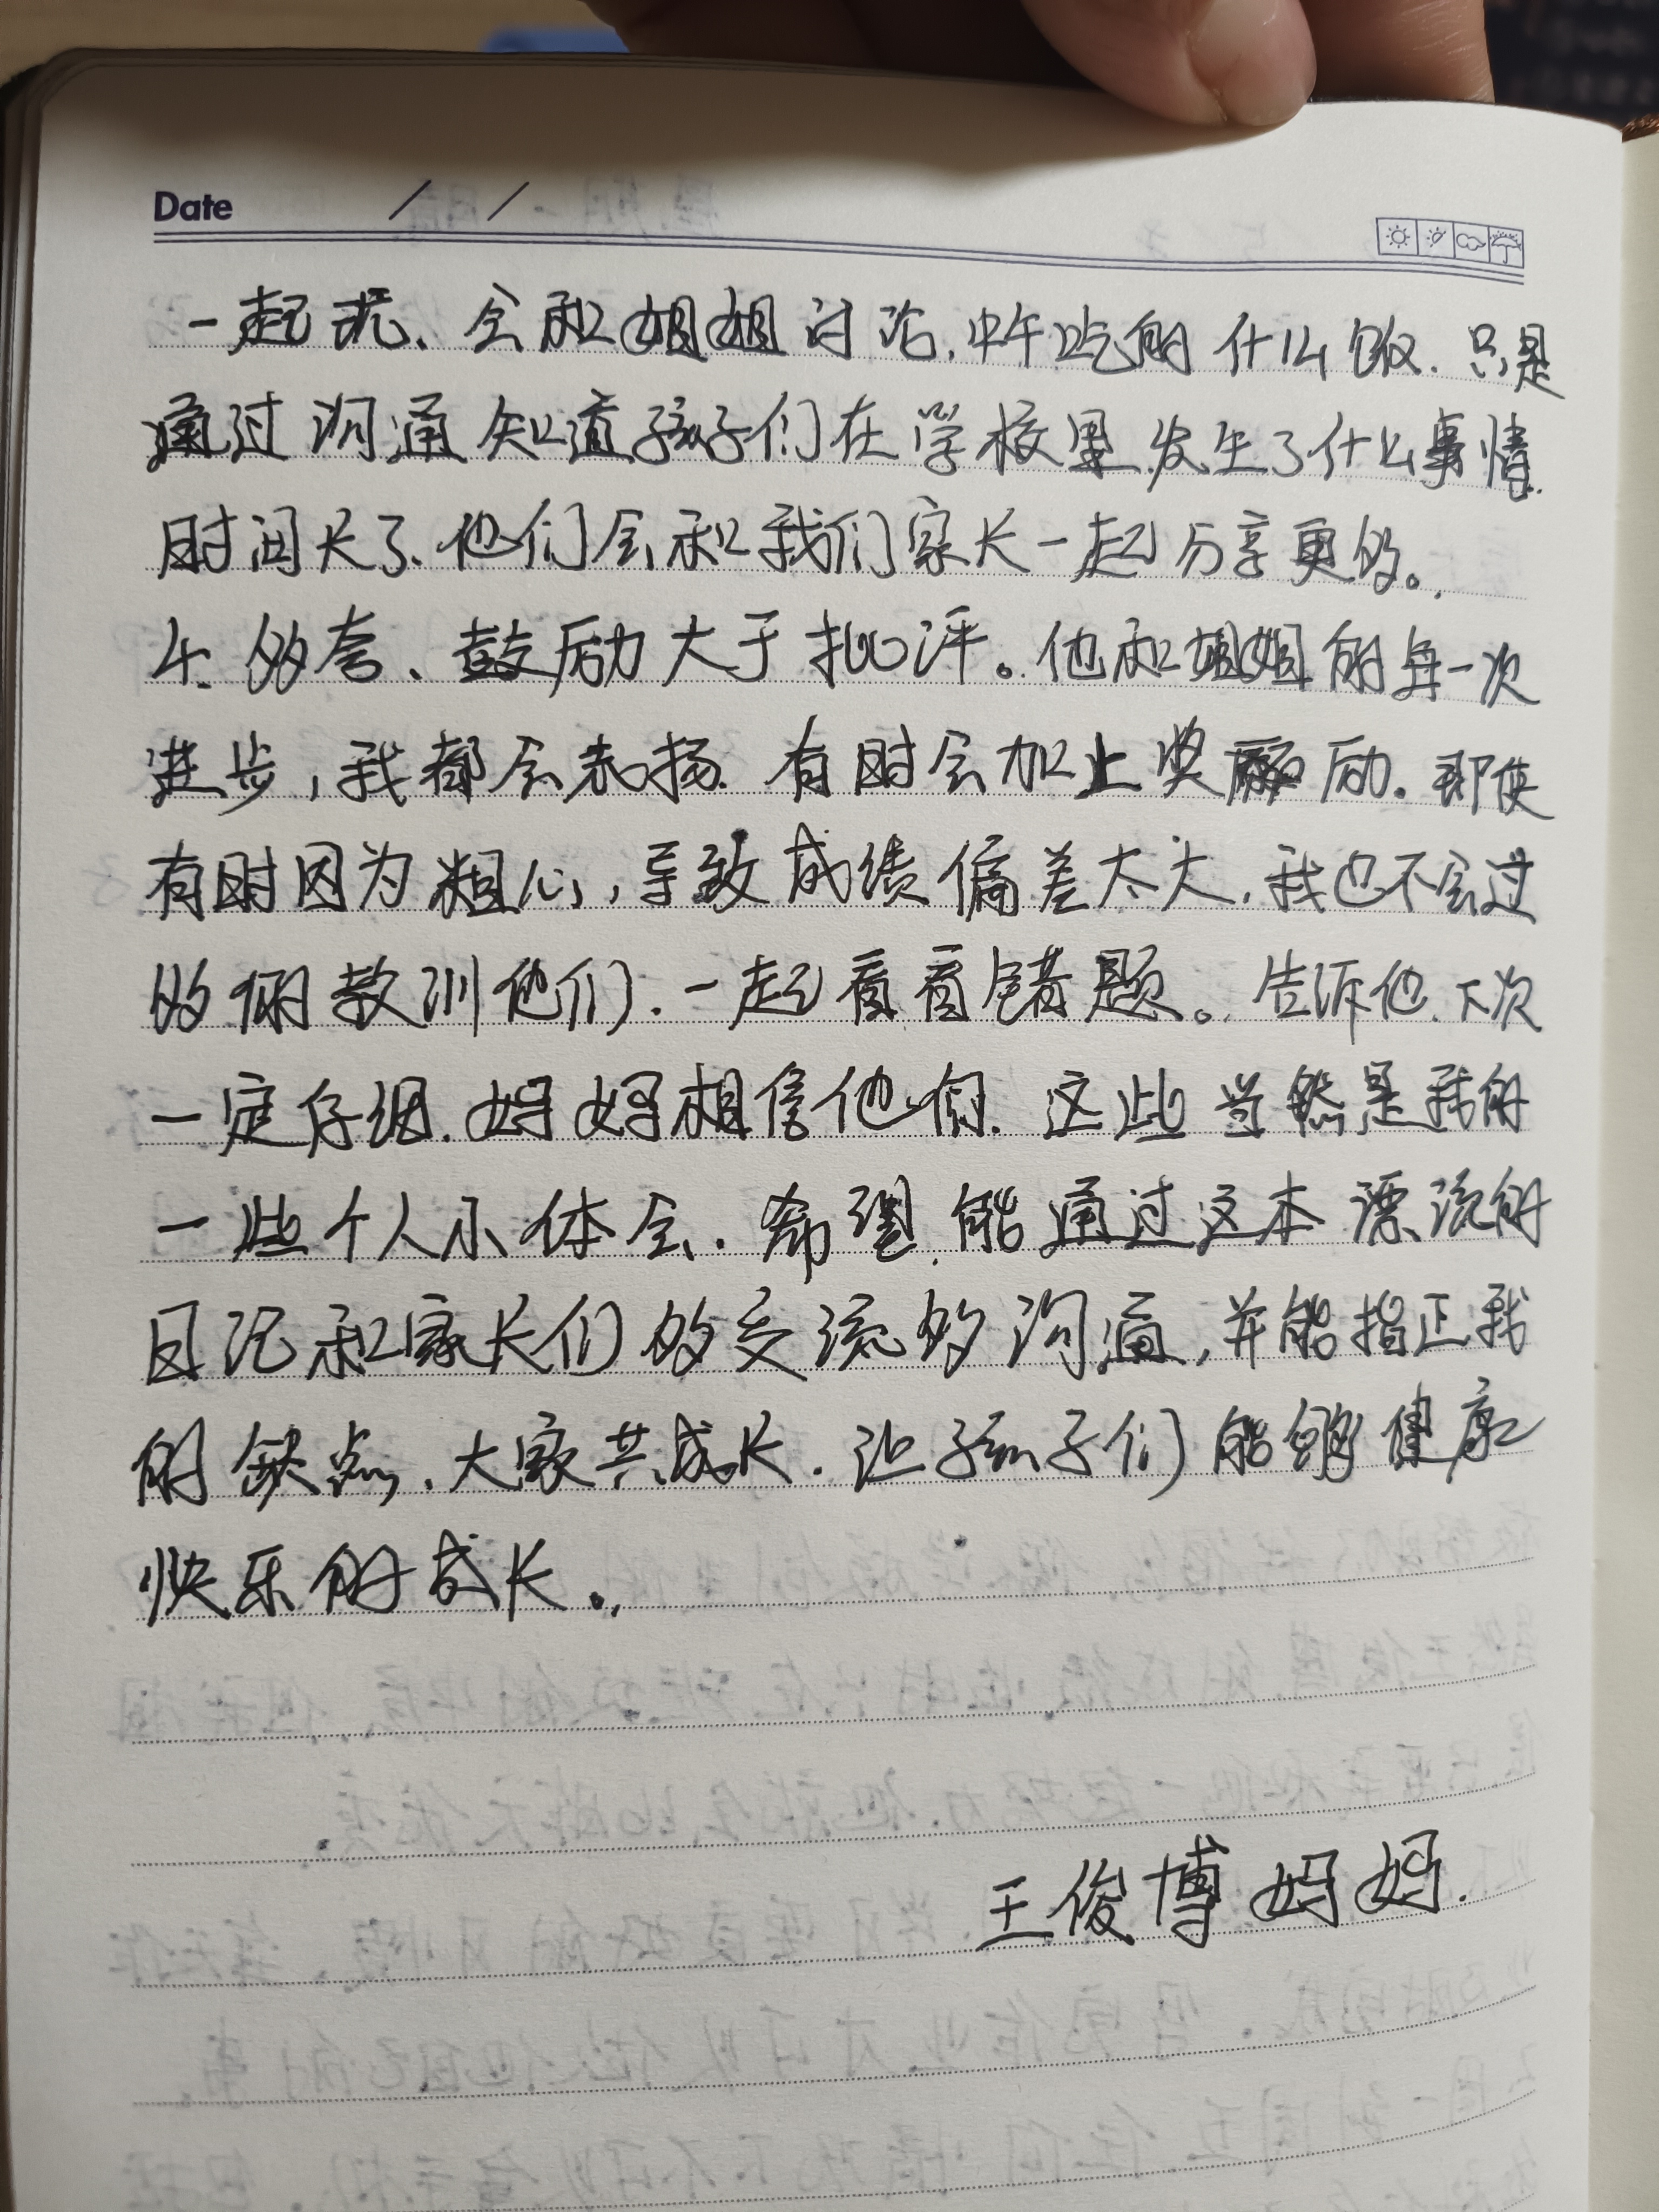 Date / /
一起玩、会和姐姐讨论.中午吃的什么饭.只是
通过沟通知道孩子们在学校里发生了什么事情.
时间长了、他们会和我们家长一起分享更多。
4.多夸、鼓励大于批评。他和姐姐的每一次
进步,我都会表扬.有时会加上奖励.即使
有时因为粗心,导致成绩偏差太大.我也不会过
多的教训他们.一起看看错题。告诉他.下次
一定仔细.妈妈相信他们.这些当然是我的
一些个人小体会.希望.能通过这本漂流的
日记和家长们多交流多沟通,并能指正我
的缺点、大家共成长.让孩子们能够健康
快乐的成长。
王俊博妈妈.